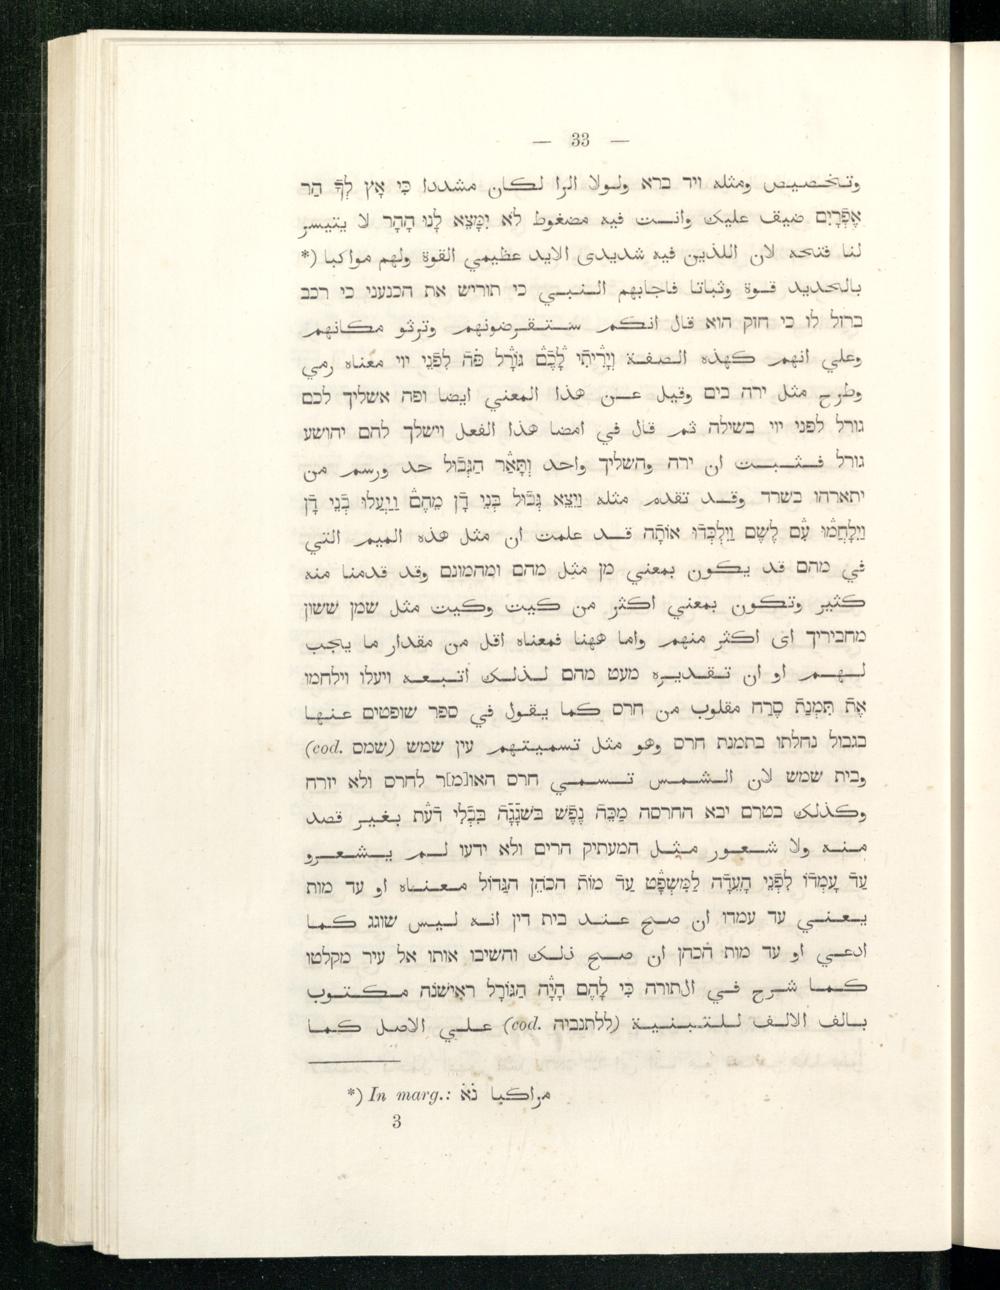 — 33 —
وتخصيص ومثله ויד ברא ولولا الرا لكان مشددا כִּי אָץ לְךָ הַר
אֶפְרָיִם ضيف عليك وانت فيه مضغوط לֹא יִמָּצֵא לָנוּ הָהָר لا يتيسر
لنا فتحه لان اللذين فيه شديدى الايد عظيمي القوة ولهم مواكبا (*
بالحديد قوة وثباتا فاجابهم النبي כי תוריש את הכנעני כי רכב
ברזל לו כי חזק הוא قال انكم ستقرضونهم وترثو مكانهم
وعلي انهم كهذه الصفة וְיָרִיתִי לָכֶם גּוֹרָל פֹּה לִפְנֵי יוי معناه رمي
وطرح مثل ירה בים وقيل عن هذا المعني ايضا ופה אשליך לכם
גורל לפני יוי בשילה ثم قال في امضا هذا الفعل וישלך להם יהושע
גורל فثبت ان ירה והשליך واحد וְתָאַר הַגְּבוּל حد ورسم من
יתארהו בשרד وقد تقدم مثله וַיֵּצֵא גְּבוּל בְּנֵי דָן מֵהֶם וַיַּעֲלוּ בְנֵי דָן
וַיִּלָּחֲמוּ עִם לֶשֶׁם וַיִּלְכְּדוּ אוֹתָהּ قد علمت ان مثل هذه الميم التي
في מהם قد يكون بمعني من مثل מהם ומהמונם وقد قدمنا منه
كثير وتكون بمعني اكثر من كيت وكيت مثل שמן ששון
מחביריך اى اكثر منهم واما ههنا فمعناه اقل من مقدار ما يجب
لهم او ان تقديره מעט מהם لذلك اتبعه ויעלו וילחמו
אֶת תִּמְנַת סֶרַח مقلوب من חרס كما يقول في ספר שופטים عنها
בגבול נחלתו בתמנת חרס وهو مثل تسميتهم עין שמש (שמם .cod)
ובית שמש لان الشمس تسمي חרס האו[מ]ר לחרס ולא יזרח
وكذلك בטרם יבא החרסה מַכֵּה נֶפֶשׁ בִּשְׁגָגָה בִּבְלִי דַעַת بغير قصد
منه ولا شعور مثل המעתיק הרים ולא ידעו لم يشعرو
עַד עָמְדוֹ לִפְנֵי הָעֵדָה לַמִּשְׁפָּט עַד מוֹת הַכֹּהֵן הַגָּדוֹל معناه او עד מות
يعني עד עמדו ان صح عند בית דין انه ليس שוגג كما
ادعي او עד מות הכהן ان صح ذلك והשיבו אותו אל עיר מקלטו
كما شرح في التورة כִּי לָהֶם הָיָה הַגּוֹרָל רִאישֹׁנָה مكتوب
بالف الالف للتبنية (ללתנביה .cod) علي الاصل كما
*) In marg.: נא مراكبا
3